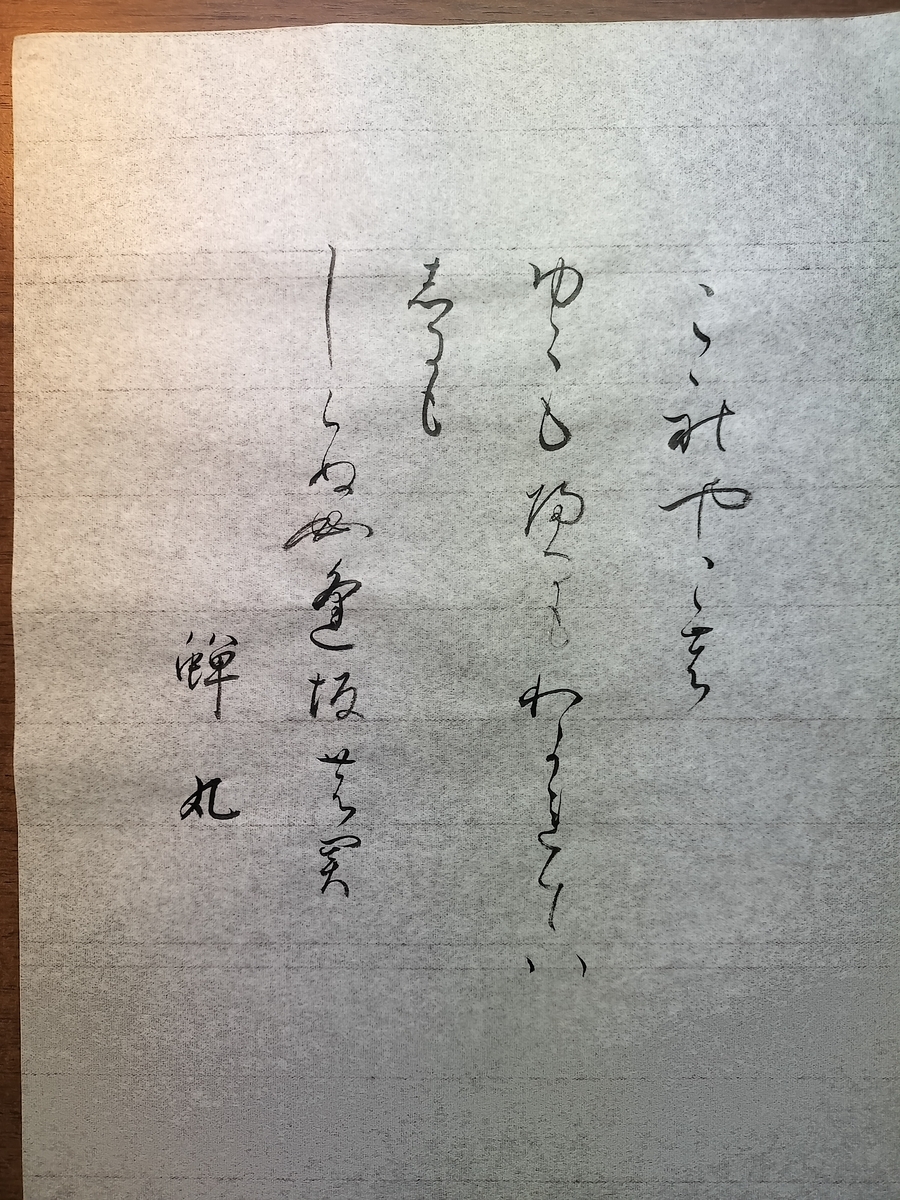 これやこの
ゆくも帰るもわかれては
志るも
しらぬも逢坂の関
蝉丸